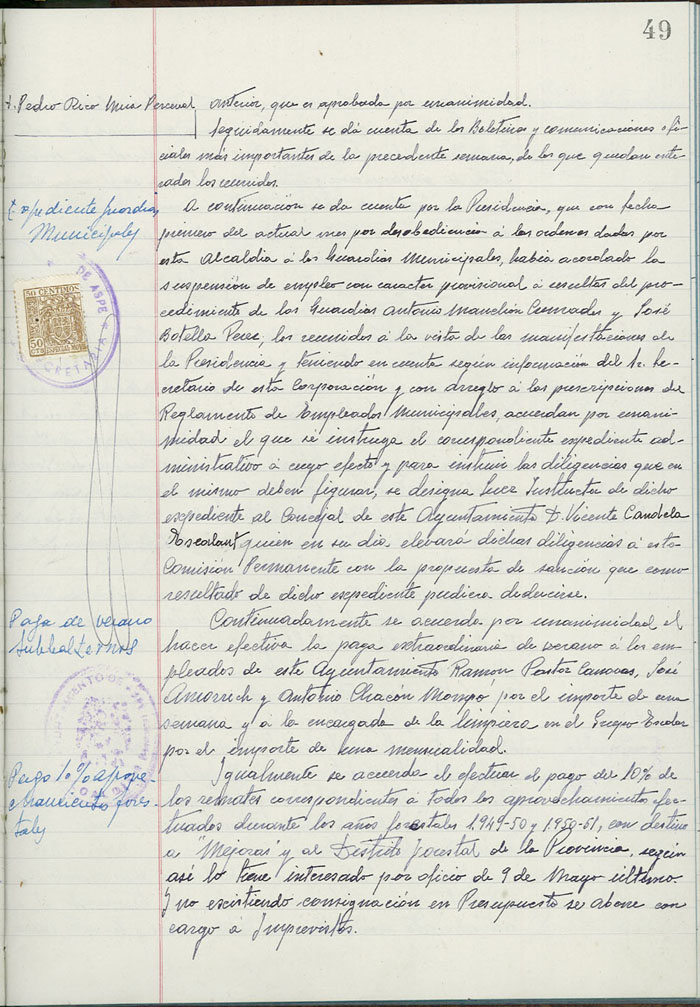 49
D. Pedro Rico Mira Perceval
anterior, que es aprobada por unanimidad.
Seguidamente se dá cuenta de los Boletines y comunicaciones ofi-
ciales más importantes de la precedente semana, de los que quedan ente-
rados los reunidos.
Expediente guardias
Municipales
A continuación se da cuenta por la Presidencia, que con fecha
primero del actual mes por desobediencia á las ordenes dadas por
esta Alcaldia á los Guardias Municipales, había acordado la
suspensión de empleo con caracter provisional á resultas del pro-
cedimiento de los Guardias Antonio Manchón Cremades y José
Botella Perez, los reunidos á la vista de las manifestaciones de
la Presidencia y teniendo en cuenta según información del Sr. Se-
cretario de esta Corporación y con arreglo á las prescripciones del
Reglamento de Empleados Municipales, acuerdan por unani-
midad el que se instruya el correspondiente expediente ad-
ministrativo á cuyo efecto y para instruir las diligencias que en
el mismo deben figurar, se designa Juez Instructor de dicho
expediente al Concejal de este Ayuntamiento D. Vicente Candela
quien en su dia elevará dichas diligencias á esta
Comisión Permanente con la propuesta de sanción que como
resultado de dicho expediente pudiera deducirse.
DE ASPE
50 CENTIMOS
50
CTS
ESPECIAL MOVIL
SECRETARIA
Paga de verano
Subbalternos
Continuadamente se acuerda por unanimidad el
hacer efectiva la paga extraordinaria de verano á los em-
pleados de este Ayuntamiento Ramon Pastor Canovas, José
Amorrich y Antonio Chacón Mompo por el importe de una
semana y á la encargada de la limpieza en el Grupo Escolar
por el importe de una mensualidad.
Pago 10% aprove-
chamiento fores-
tales
Igualmente se acuerda el efectuar el pago del 10% de
los remates correspondientes á todos los aprovechamientos efec-
tuados durante los años forestales 1.949-50 y 1.950-51, con destino
á "Mejoras" y al Distrito forestal de la Provincia, según
asé lo tiene interesado por oficio de 9 de Mayo último.
Y no escistiendo consignación en Presupuesto se abone con
cargo á Imprevistos.